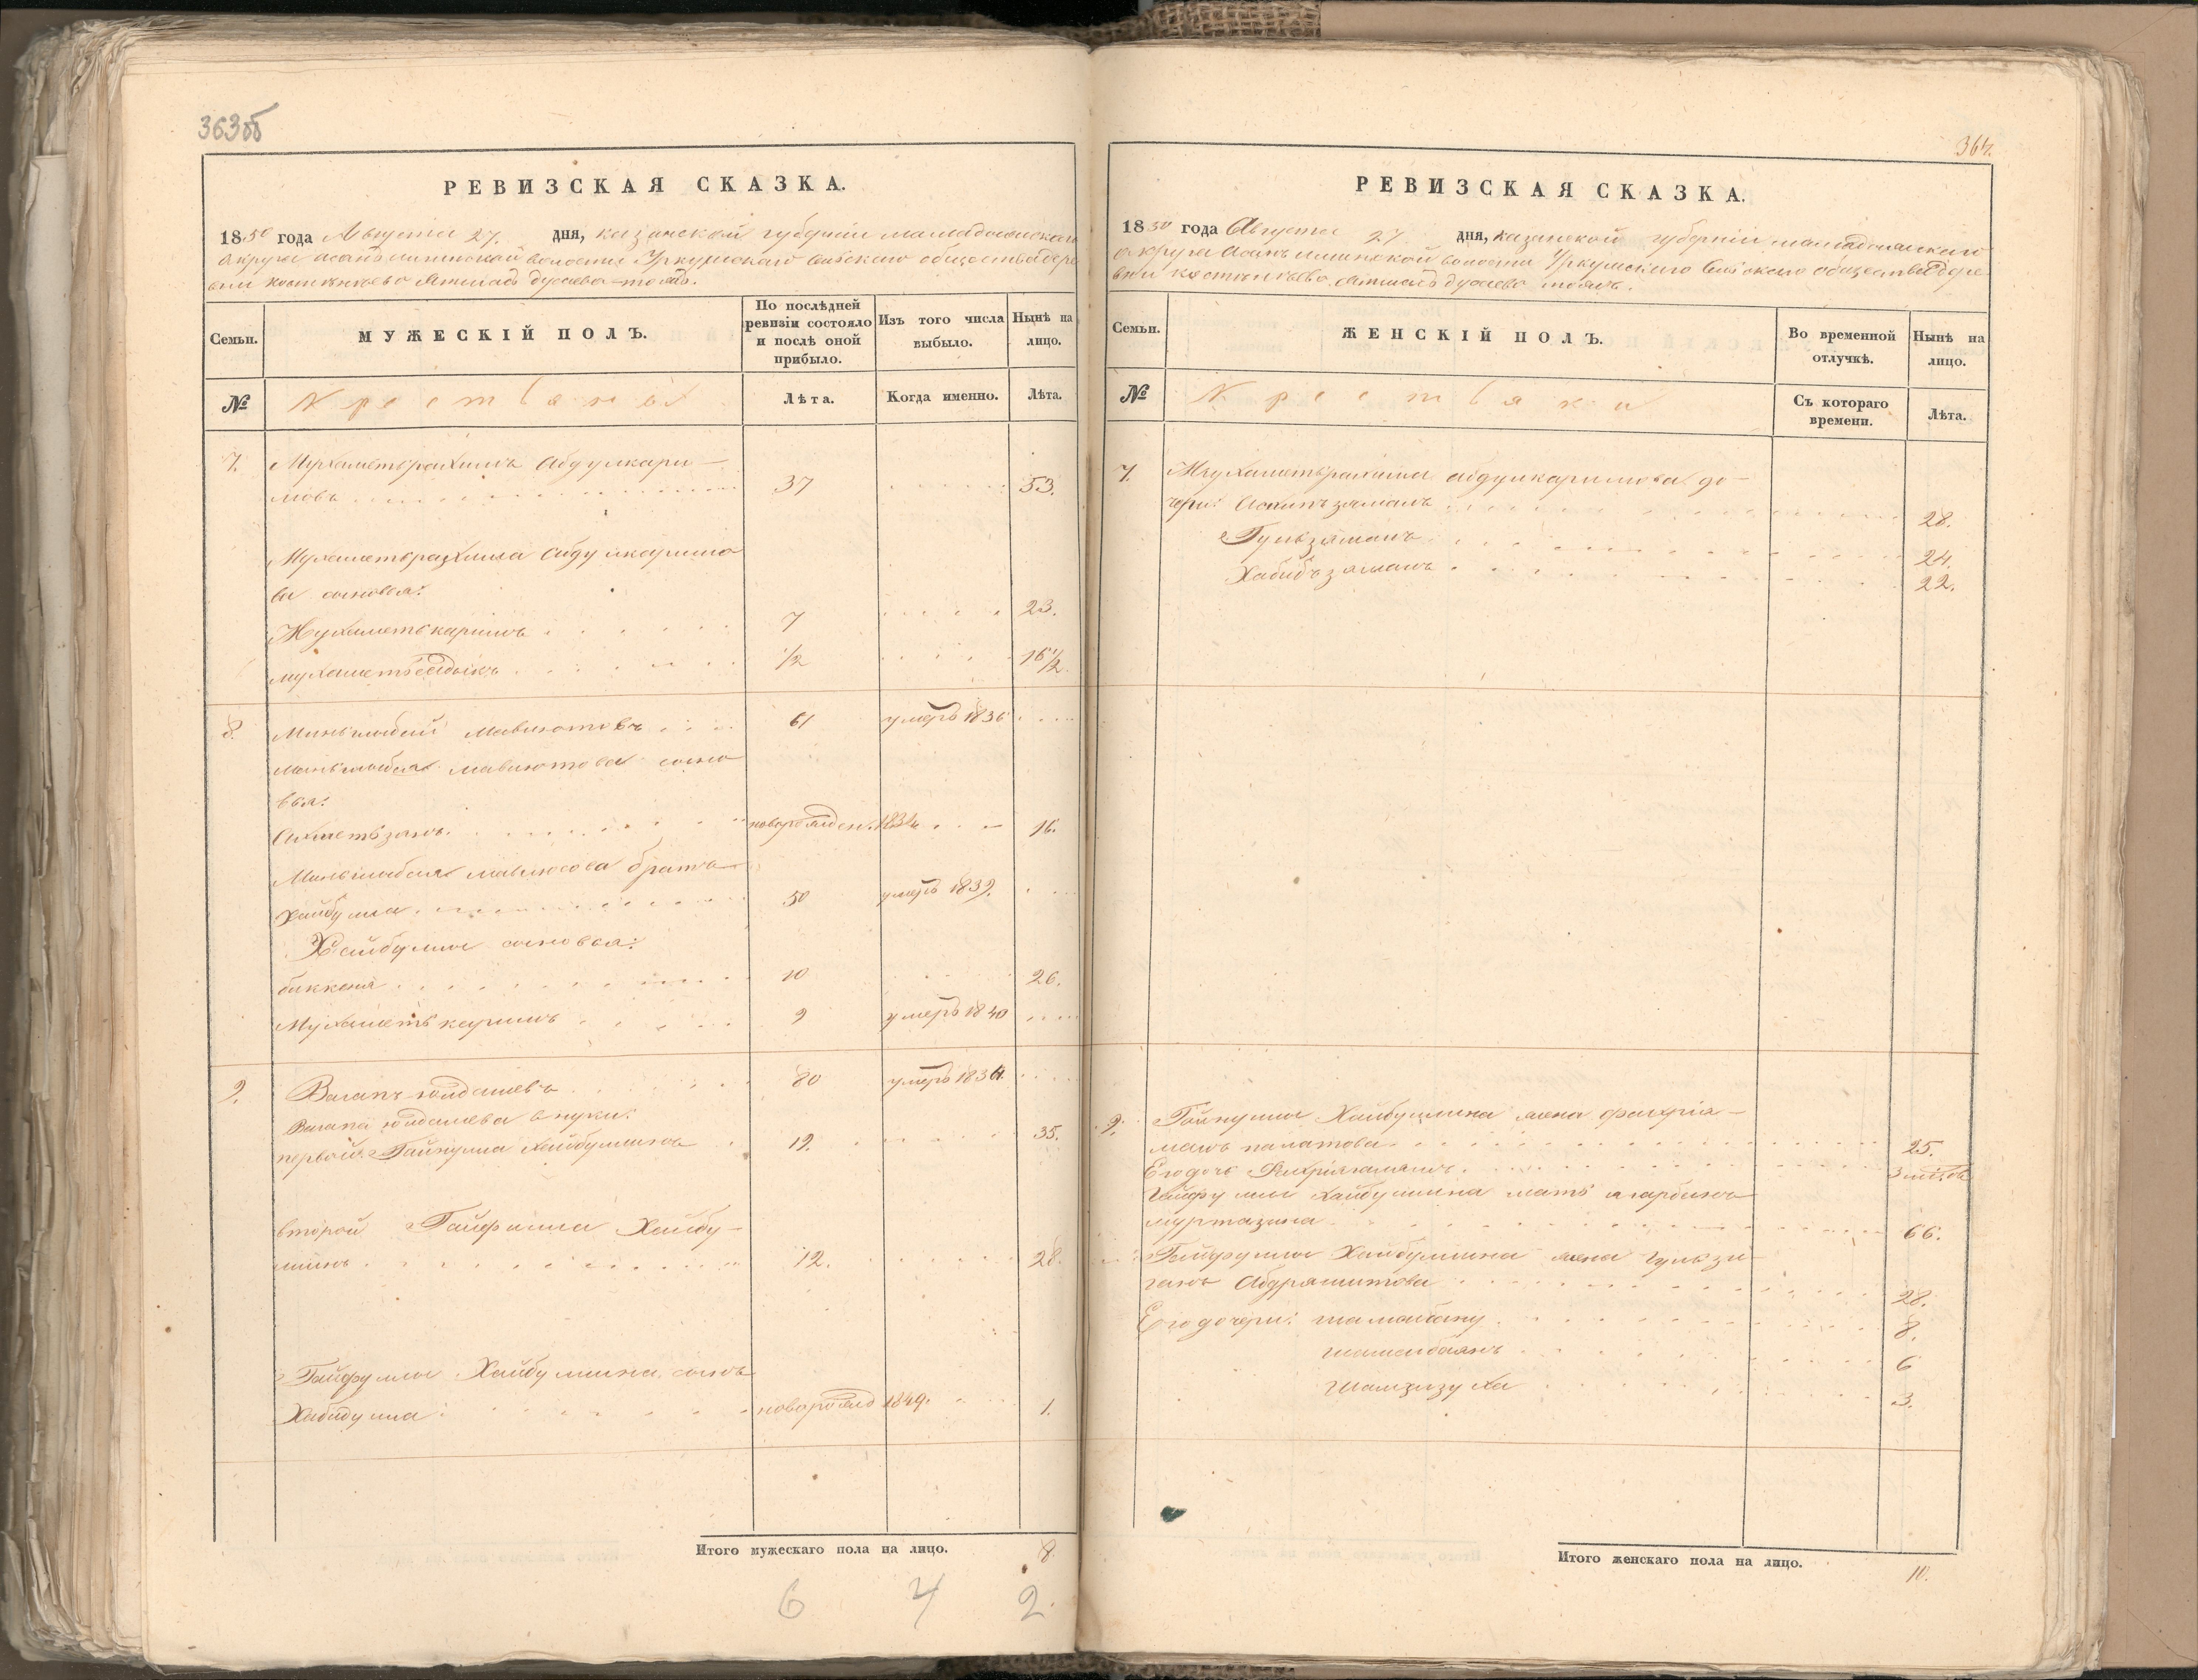 363об
РЕВИЗСКАЯ СКАЗКА.
1850 года Августа 27. дня, казанской губернии мамадышскаго
округа асанъ Уркушскаго сельскаго общества дере
вни
Семьи.
МУЖЕСКІЙ ПОЛЪ.
По послѣдней ревизіи состояло и послѣ оной прибыло.
Изъ того числа выбыло.
Нынѣ на лицо.
№
Лѣта.
Когда именно.
Лѣта.
7. Мухаметьрахимъ Абдулкари-
мовъ 37 53.
Мухаметьрахима Абдулкаримо
ва сыновья:
Мухаметькаримъ 7 23.
мухаметьсадыкъ 1/2 16 1/2.
8. Миньлибай Мавлютовъ 61 умеръ 1836
миньлибая мавлютова сыно
вья:
Ахметьзянъ. новорожден. 1834 16.
Миньлибая братъ
Хайбулла 50 умеръ 1839.
Хайбуллы сыновья:
биккеня 10 26.
Мухаметькаримъ 9 умеръ 1840
9. Вагапъ юлдашевъ 80 умеръ 1834.
Вагапа юлдашева внуки:
первой: Гайнулла Хайбуллинъ 19. 35.
второй Гайфулла Хайбу-
ллинъ 12. 28.
Гайфуллы Хайбуллина сынъ
Хабидулла: новорожд 1849. 1.
Итого мужескаго пола на лицо. 8.
6 4 2.
364.
РЕВИЗСКАЯ СКАЗКА.
1850 года Августа 27 дня, казанской губерніи мамадышскаго
округа Асанъ волости Уркушскаго сельскаго общества дере
вни
Семьи.
ЖЕНСКІЙ ПОЛЪ.
Во временной отлучкѣ.
Нынѣ на лицо.
№
Крестьянки
Съ котораго времени.
Лѣта.
7. Мухаметьрахима абдулкаримова до-
чери: 28.
Гульзяманъ 24.
Хабибъзяманъ 22.
9. Гайнуллы Хайбуллина жена
25.
Его дочь 3 мѣсяц
Гайфуллы Хайбуллина мать
муртазина 66.
Гайфуллы Хайбуллина жена Гульзи
Абдрашитова 28.
Его дочери: шамсибану 8.
шамсибаянъ 6
Шамзизуха 3.
Итого женскаго пола на лицо. 10.